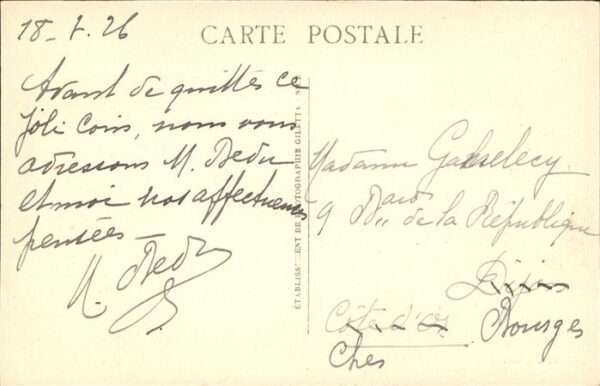 18-7-26
CARTE POSTALE
Avant de quitter ce
joli coin, nous vous
adressons M. Bedu
et moi nos affectueuses
pensées —
M. Bedu
ÉTABLISSEMENT DE PHOTOGRAPHIE GILETTA
Madame
9 Bard de la République
Dijon
Côte d'Or Bourges
Cher